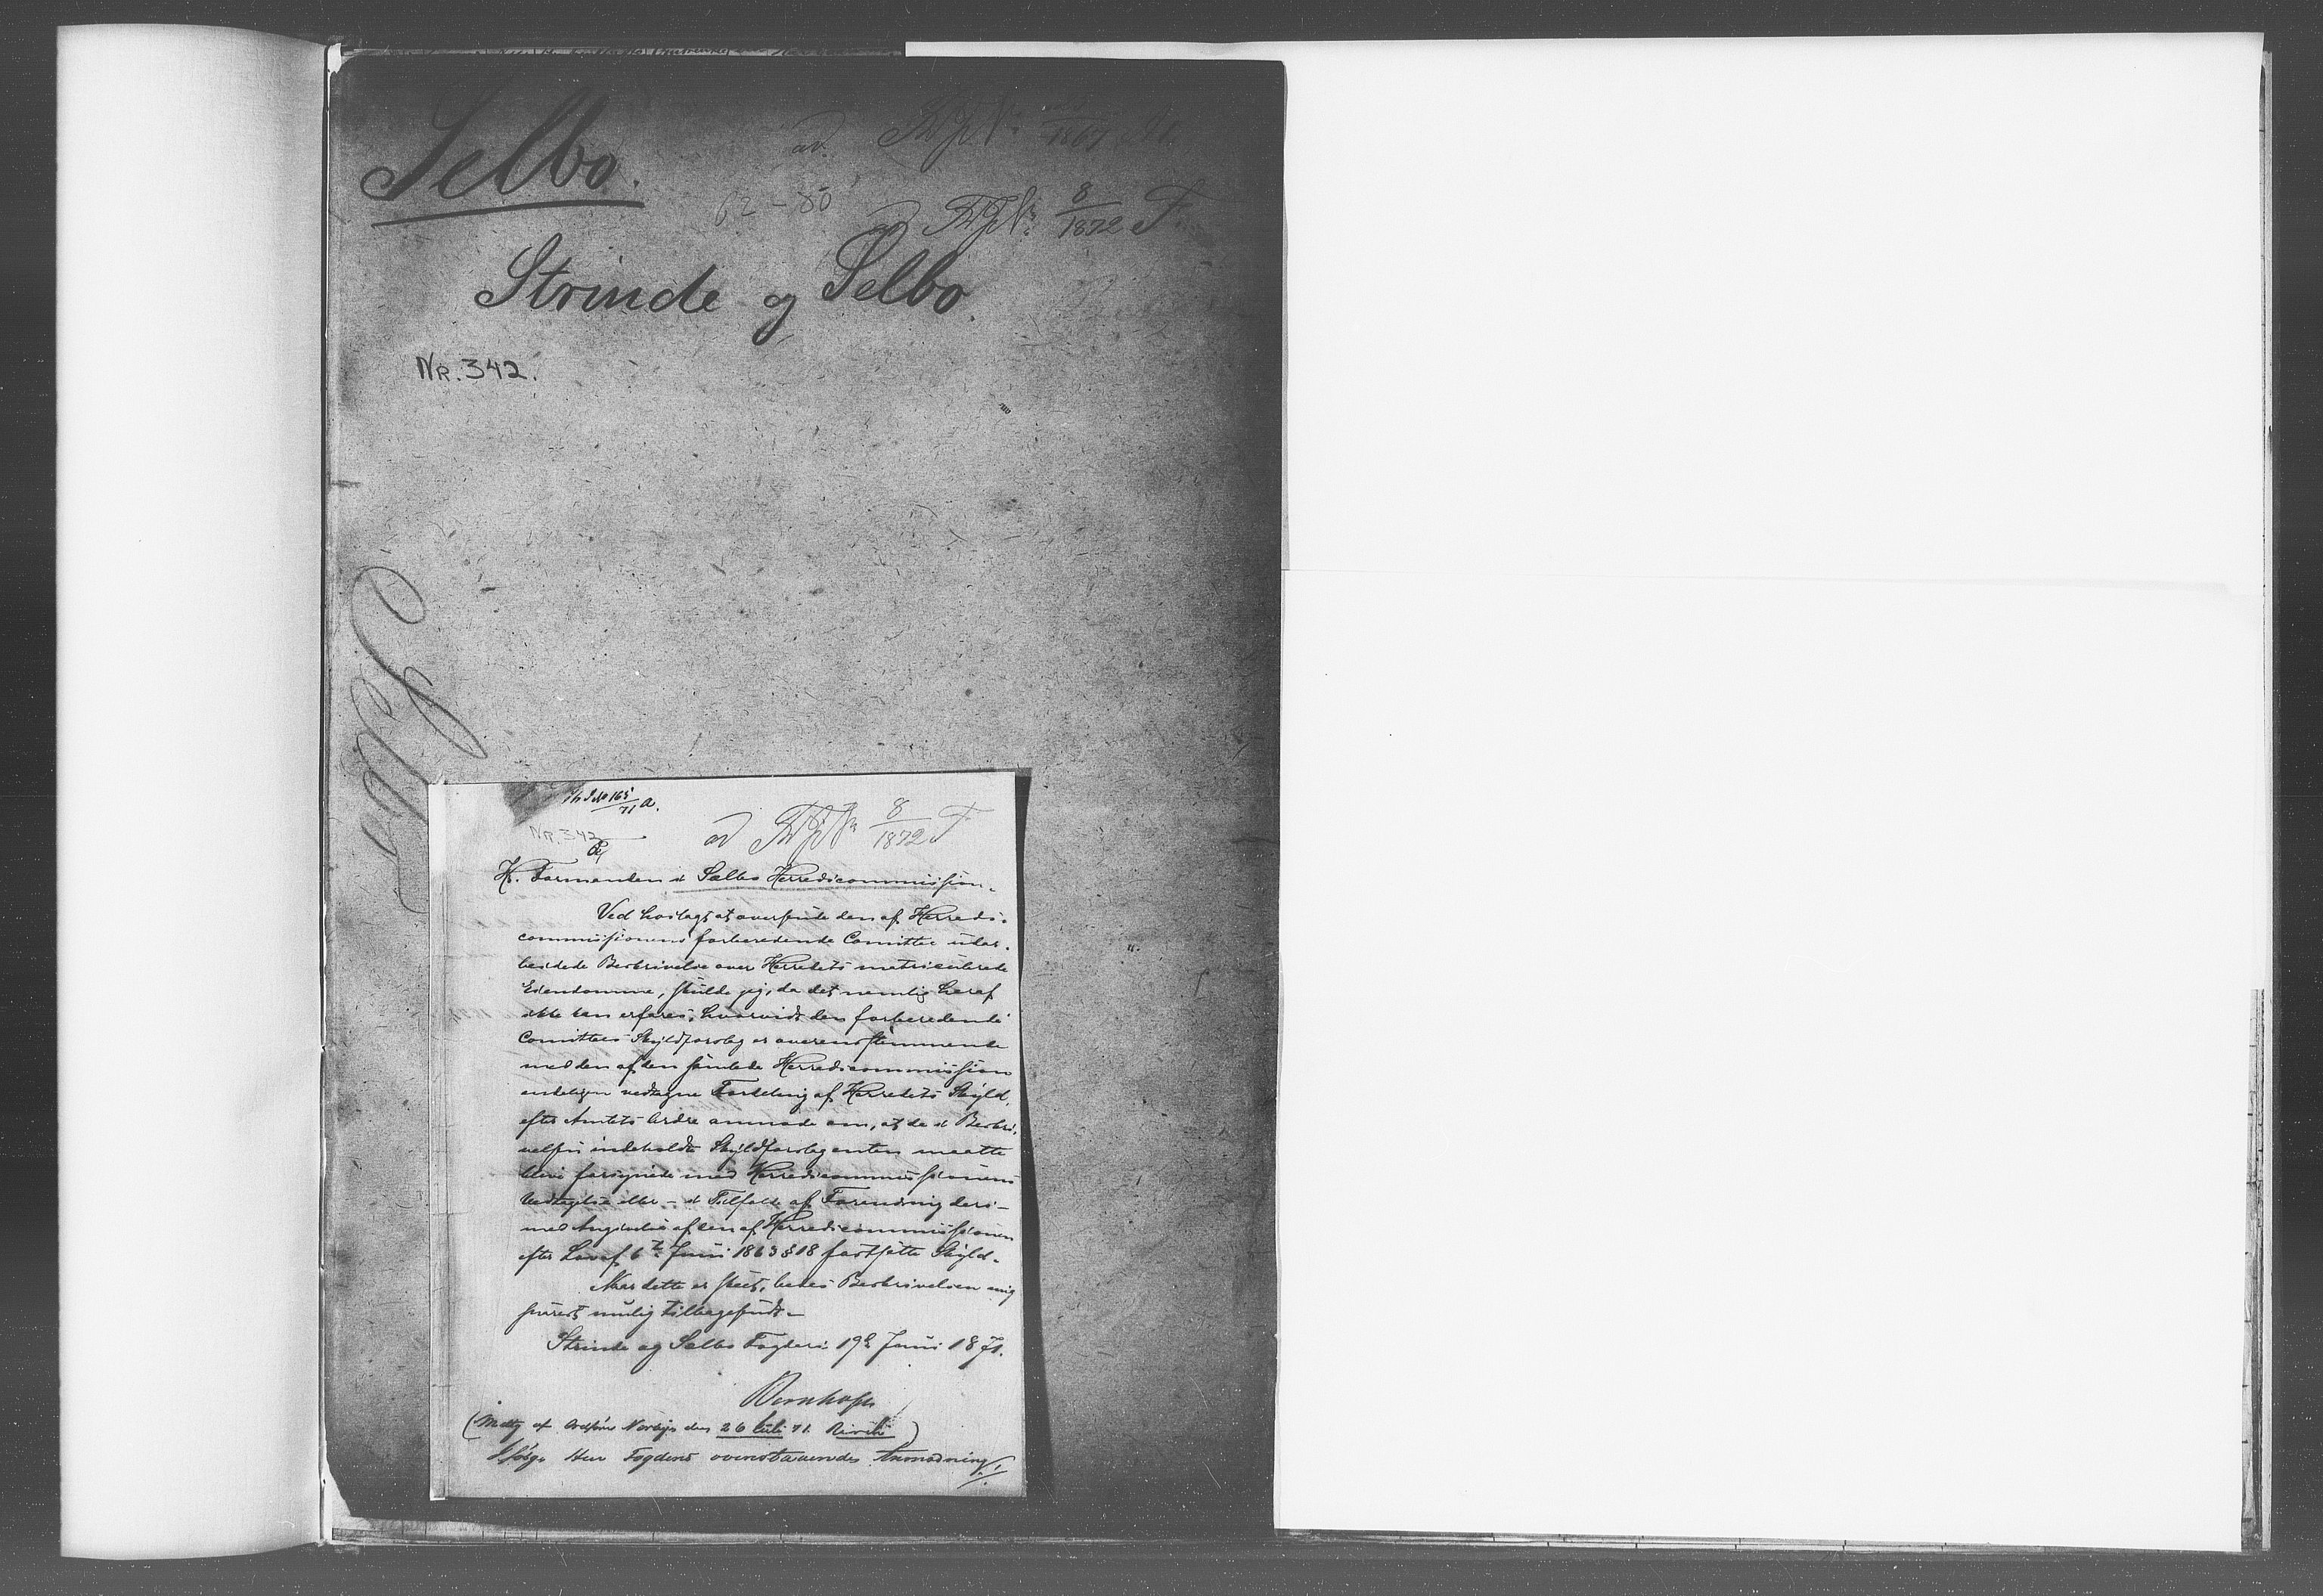 Selbo.
62-80
ad
8/1872 F.
Strinde og Selbo.
Nr. 342.
Selbo
165/71 a.
Nr. 342
ad
8/1872 F
Hr. Formanden i Selbo Herredscommission.
Ved hoslagt at oversende den af Herreds-
commissionens forberedende Comittee udar-
beidede Beskrivelse over Herredets matriculerede
Eiendomme, skulde jeg, da det nemlig heraf
ikke kan erfares, hvorvidt den forberedende
Comittees Skyldforslag er overensstemmende
med den af den samlede Herredscommission
endeligen vedtagne Fordeling af Herredets Skyld,
efter Amtets Ordre anmode om, at de i Beskri-
velsen indeholdte Skyldforslag enten maatte
blive forsynede med Herredscommissionens
Vedtagelse eller - i Tilfælde af Forandring deri -
med Angivelse af den af Herredscommissionen
efter Lov af 6te Juni 1863 § 18 fastsatte Skyld.
Naar dette er skeet, bedes Beskrivelsen mig
snarest mulig tilbagesendt.
Strinde og Selbo Fogderi 19de Juni 1871.
Bernhoft
(Modtg af Ordfører den 26 Juli 71.)
Ifølge Herr Fogdens ovenstaaendes Anmodning